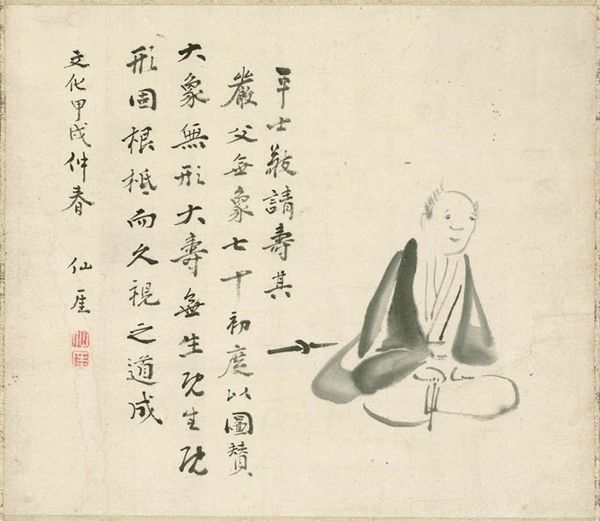 平士敬請壽其
嚴父無象七十初度以圖贊
大象無形大壽無生既生既
形固根柢而久視之道成
文化甲戌仲春
仙厓